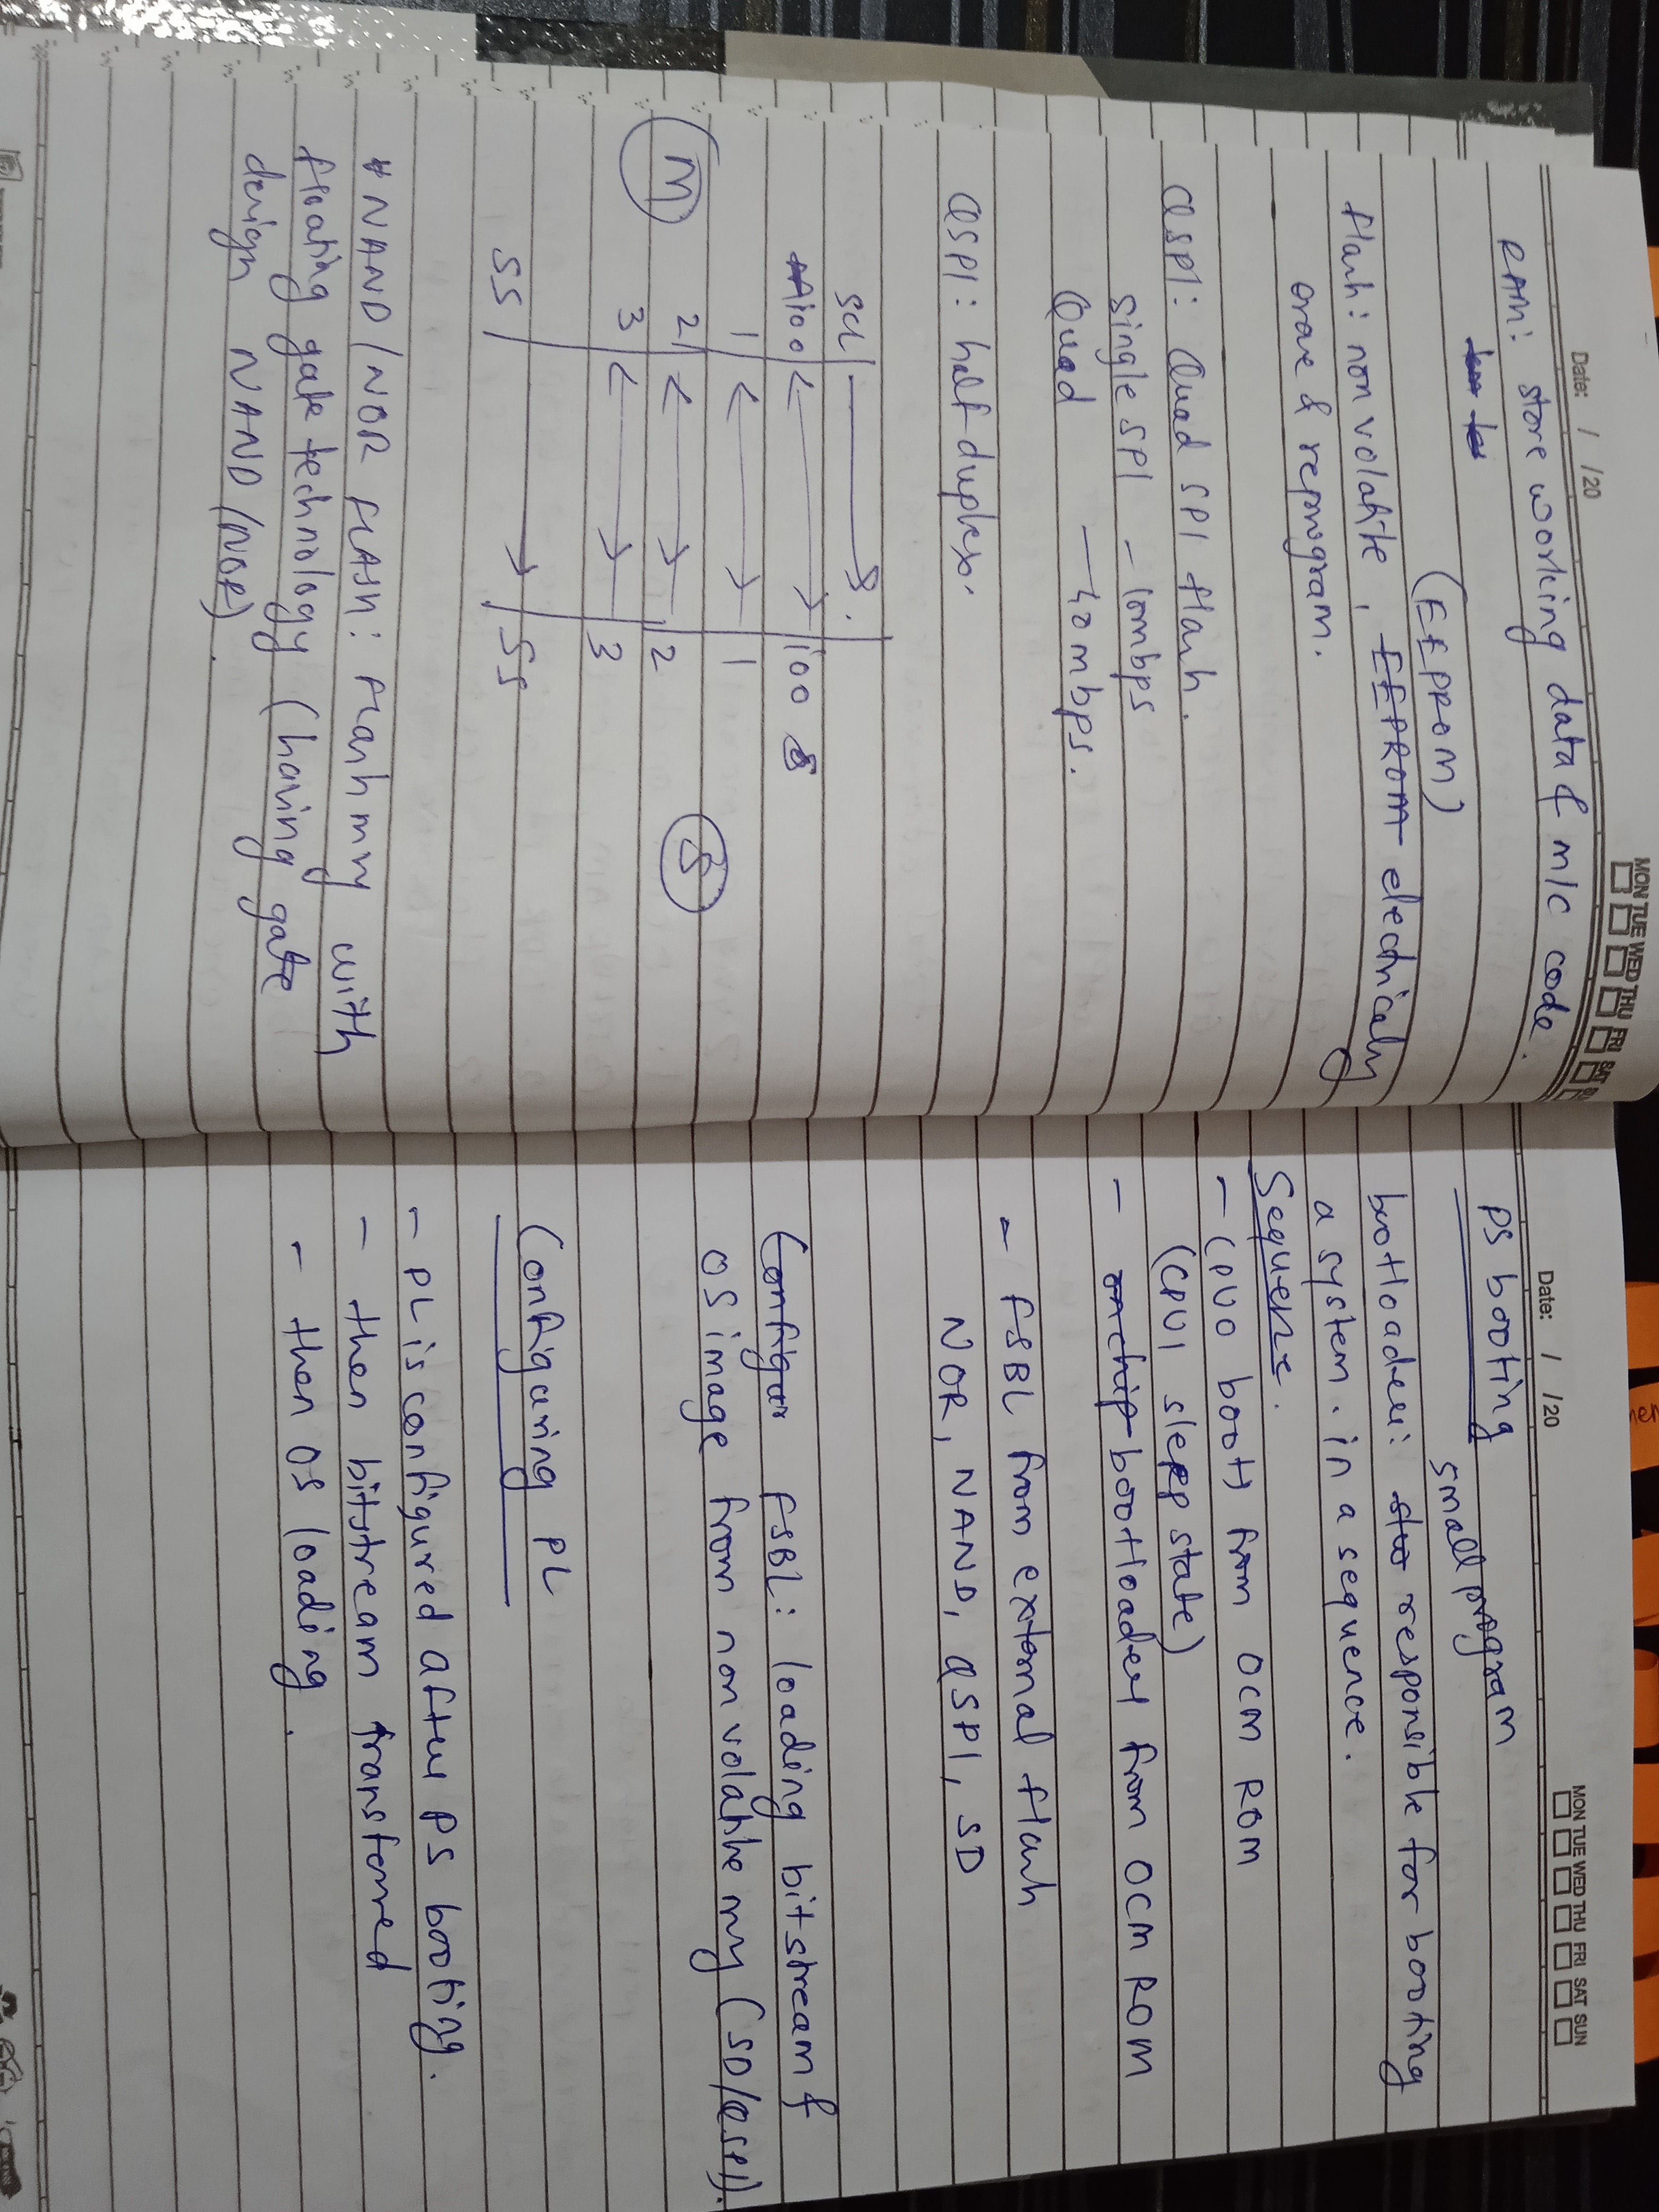 Date: / /20
MON TUE WED THU FRI SAT
RAM: store working data & m/c code.
(EEPROM)
flash: non volatile, EEPROM electrically
erase & reprogram.
QSPI: Quad SPI flash.
single SPI - 10mbps
Quad — 40mbps.
QSPI: half duplex.
scl
io0 io0
1 1
2 2
3 3
SS SS
M
S
# NAND/NOR FLASH: Flash mry with
floating gate technology (having gate
design NAND/NOR).
Date: / /20
MON TUE WED THU FRI SAT SUN
PS booting
small program
bootloader: responsible for booting
a system. in a sequence.
Sequence.
- CPU0 boots from OCM ROM
(CPU1 sleep state)
- onchip bootloader from OCM ROM
- FSBL from external flash
NOR, NAND, QSPI, SD
Configur FSBL: loading bitstream &
OS image from non volatile mry (SD/QSPI).
Configuring PL
- PL is configured after PS booting.
- then bitstream transferred
- then OS loading.